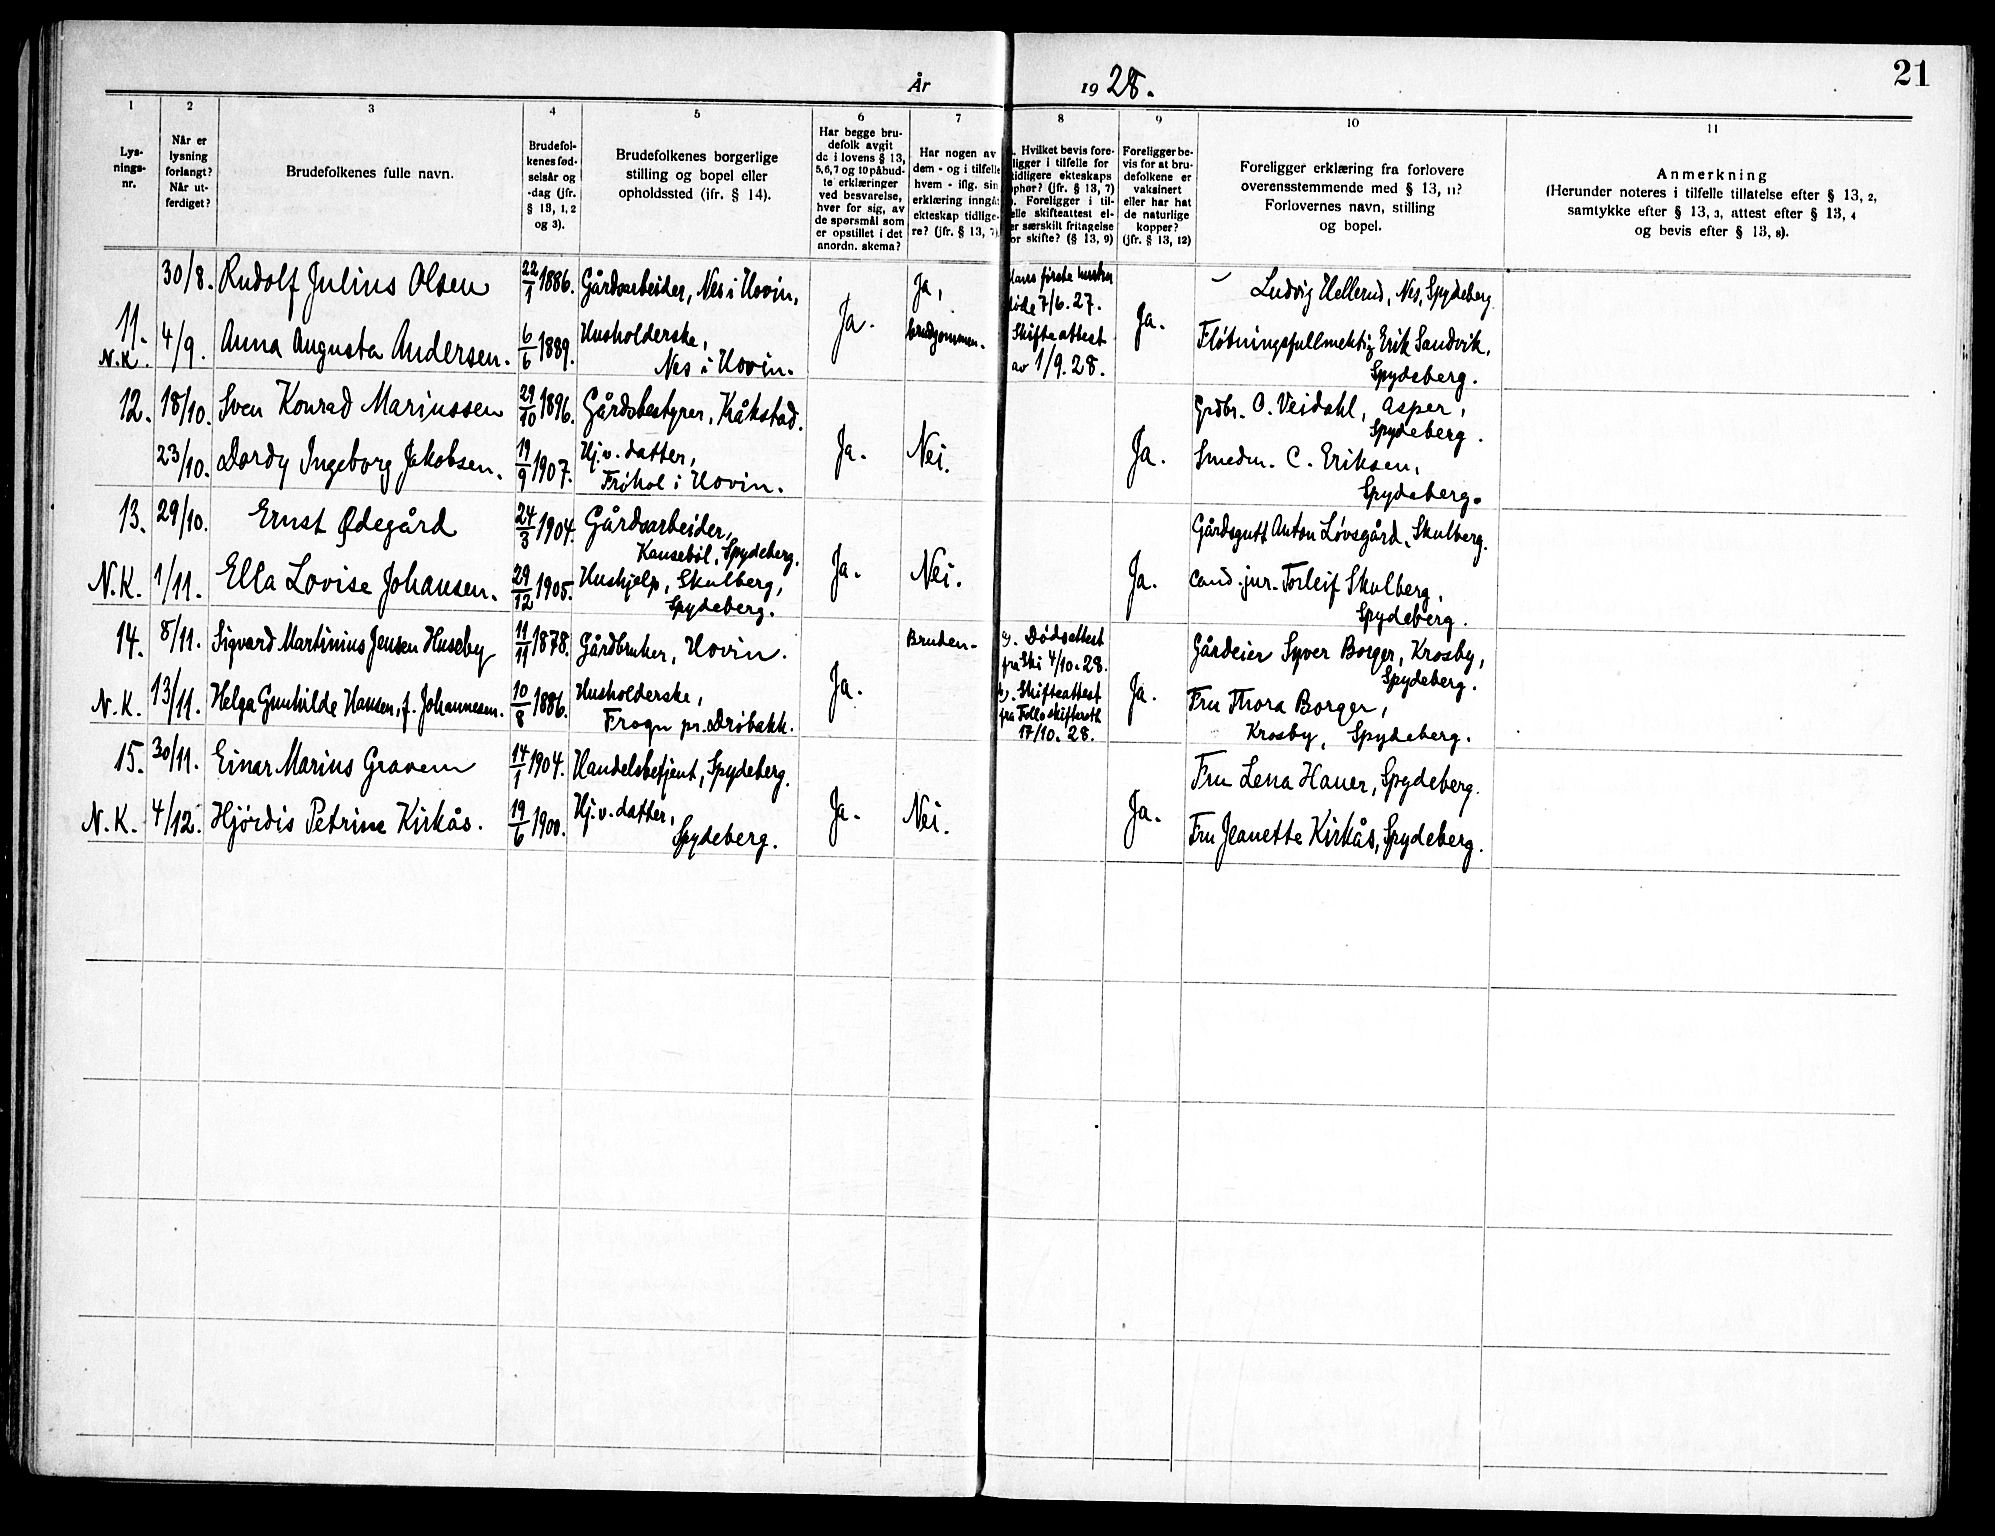 21
År 1928.
1 2 3 4 5 6 7 8 9 10 11
Lys-
nings-
nr.
Når er
lysning
forlangt?
Når ut-
ferdiget?
Brudefolkenes fulle navn.
Brudefol-
kenes fød-
selsår og
-dag (jfr.
§ 13, 1, 2
og 3).
Brudefolkenes borgerlige
stilling og bopel eller
opholdssted (jfr. § 14).
Har begge bru-
defolk avgit
de i lovens § 13,
5, 6, 7 og 10 påbud-
te erklæringer
ved besvarelse,
hver for sig, av
de spørsmål som
er opstillet i det
anordn. skema?
Har nogen av
dem - og i tilfelle
hvem - iflg. sin
erklæring inngåt
ekteskap tidlige-
re? (jfr. § 13, 7)
Hvilket bevis fore-
ligger i tilfelle for
tidligere ekteskaps
ophør? (jfr. § 13, 7)
Foreligger i til-
elle skifteattest el-
er særskilt fritagelse
or skifte? (§ 13, 9)
Foreligger be-
vis for at bru-
defolkene er
vaksinert
eller har hat
de naturlige
kopper?
(jfr. § 13, 12)
Foreligger erklæring fra forlovere
overensstemmende med § 13, 11?
Forlovernes navn, stilling
og bopel.
Anmerkning
(Herunder noteres i tilfelle tillatelse efter § 13, 2,
samtykke efter § 13, 3, attest efter § 13, 4
og bevis efter § 13, 8).
11.
N.K.
30/8. Rudolf Julius Olsen 22/1 1886. Gårdsarbeider, Nes i Hovin,
4/9. Anna Augusta Andersen. 6/6 1889. Husholderske,
Nes i Hovin.
Ja.
Ja,
brudgommen.
Hans første hustru
døde 7/6. 27.
Skifteattest
av 1/9. 28.
Ja.
Ludvig Hellerud, Nes, Spydeberg
Fløtningsfullmektig Erik Sandvik,
Spydeberg.
12. 18/10. Sven Konrad Mariussen 29/10 1896. Gårdsbestyrer, Kråkstad.
23/10. Dordy Ingeborg Jakobsen. 19/9 1907. Hj.v. datter,
Frøhol i Hovin.
Ja. Nei. Ja.
Grdbr. O. Veidahl, Asper,
Spydeberg.
Smedm. C. Eriksen,
Spydeberg.
13. 29/10. Ernst Ødegård 24/3 1904. Gårdsarbeider,
Kausebøl, Spydeberg.
N.K. 1/11. Ella Lovise Johansen. 29/12 1905. Hushjelp, Skulberg,
Spydeberg.
Ja. Nei. Ja.
Gårdsgutt Anton Løvsgård, Skulberg.
Cand. jur. Torleif Skulberg,
Spydeberg.
14. 8/11. Sigvard Martinius Jensen Huseby 11/11 1878. Gårdbruker, Hovin.
N.K. 13/11. Helga Gunhilde Hansen, f. Johannesen. 10/8 1886. Husholderske,
Frogn pr. Drøbakk.
Ja.
Bruden.
a). Dødsattest
fra Ski 4/10. 28.
b). Skifteattest
fra Follo skifterett
17/10. 28.
Ja.
Gårdeier Syver Borger, Krosby,
Spydeberg.
Fru Thora Borger,
Krosby, Spydeberg.
15. 30/11. Einar Marius Gravem 14/1 1904. Handelsbetjent, Spydeberg.
N.K. 4/12. Hjørdis Petrine Kirkås. 19/6 1900. Hj.v. datter,
Spydeberg.
Ja. Nei. Ja.
Fru Lena Hauer, Spydeberg.
Fru Jeanette Kirkås, Spydeberg.